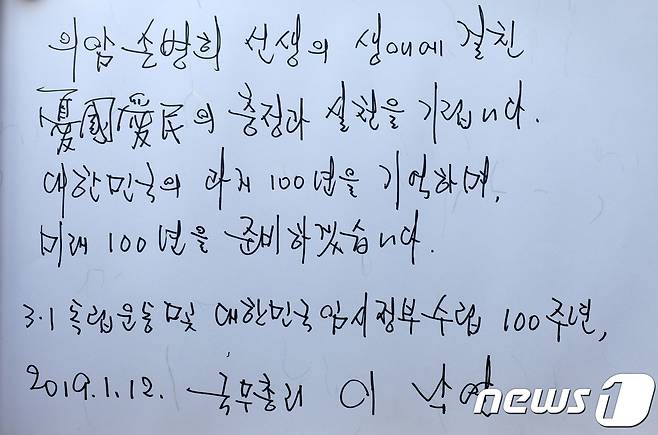 의암 손병희 선생의 생애에 걸친
憂國愛民의 충정과 실천을 기립니다.
대한민국의 과거 100년을 기억하며,
미래 100년을 준비하겠습니다.
3·1 독립운동 및 대한민국임시정부수립 100주년,
2019.1.12. 국무총리 이낙연
news1